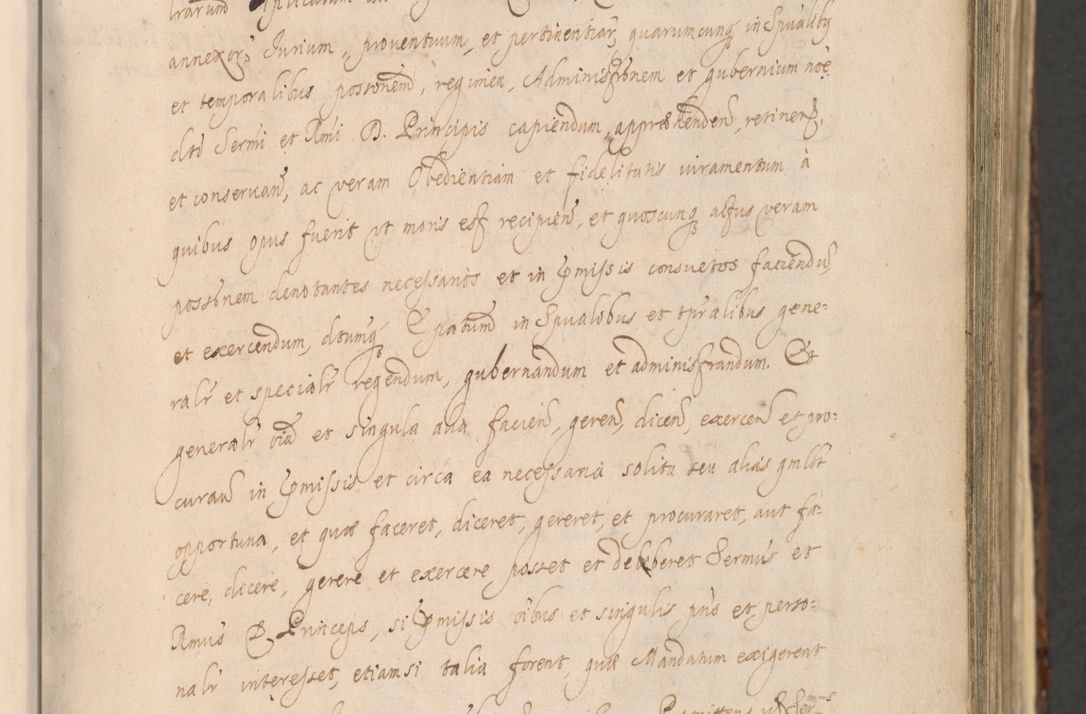 annexor, Jurium, proventuum, et pertinentiar, quarumcunq in Spualibus
et temporalibus possonem, regimen, Administrōnem et gubernium noe
dti Sermi et Rmi D. Principis capiendum, appræhenden, retinen,
et conservan, ac veram Obedientiam et fidelitatis iuramentum à
quibus opus fuerit ut moris est recipien, et quoscunq actus veram
possonem denotantes necessarios et in pmissis consuetos faciendu
et exercendum, dtumq Epatum in Spualibus et tpralibus gene-
ralr et specialr regendum, gubernandum et administrandum. Et
generalr oia et singula alia facien, geren, dicen, exercen et pro-
curan in pmissis et circa ea necessaria solita seu alias qmlt
opportuna, et quæ faceret, diceret, gereret, et procuraret, aut fa-
cere, dicere, gerere et exercere posset et deberet Sermus et
Rmus D. Princeps, si pmissis oibus et singulis pns et perso-
nalr interesset, etiamsi talia forent, quæ Mandatum exigerent